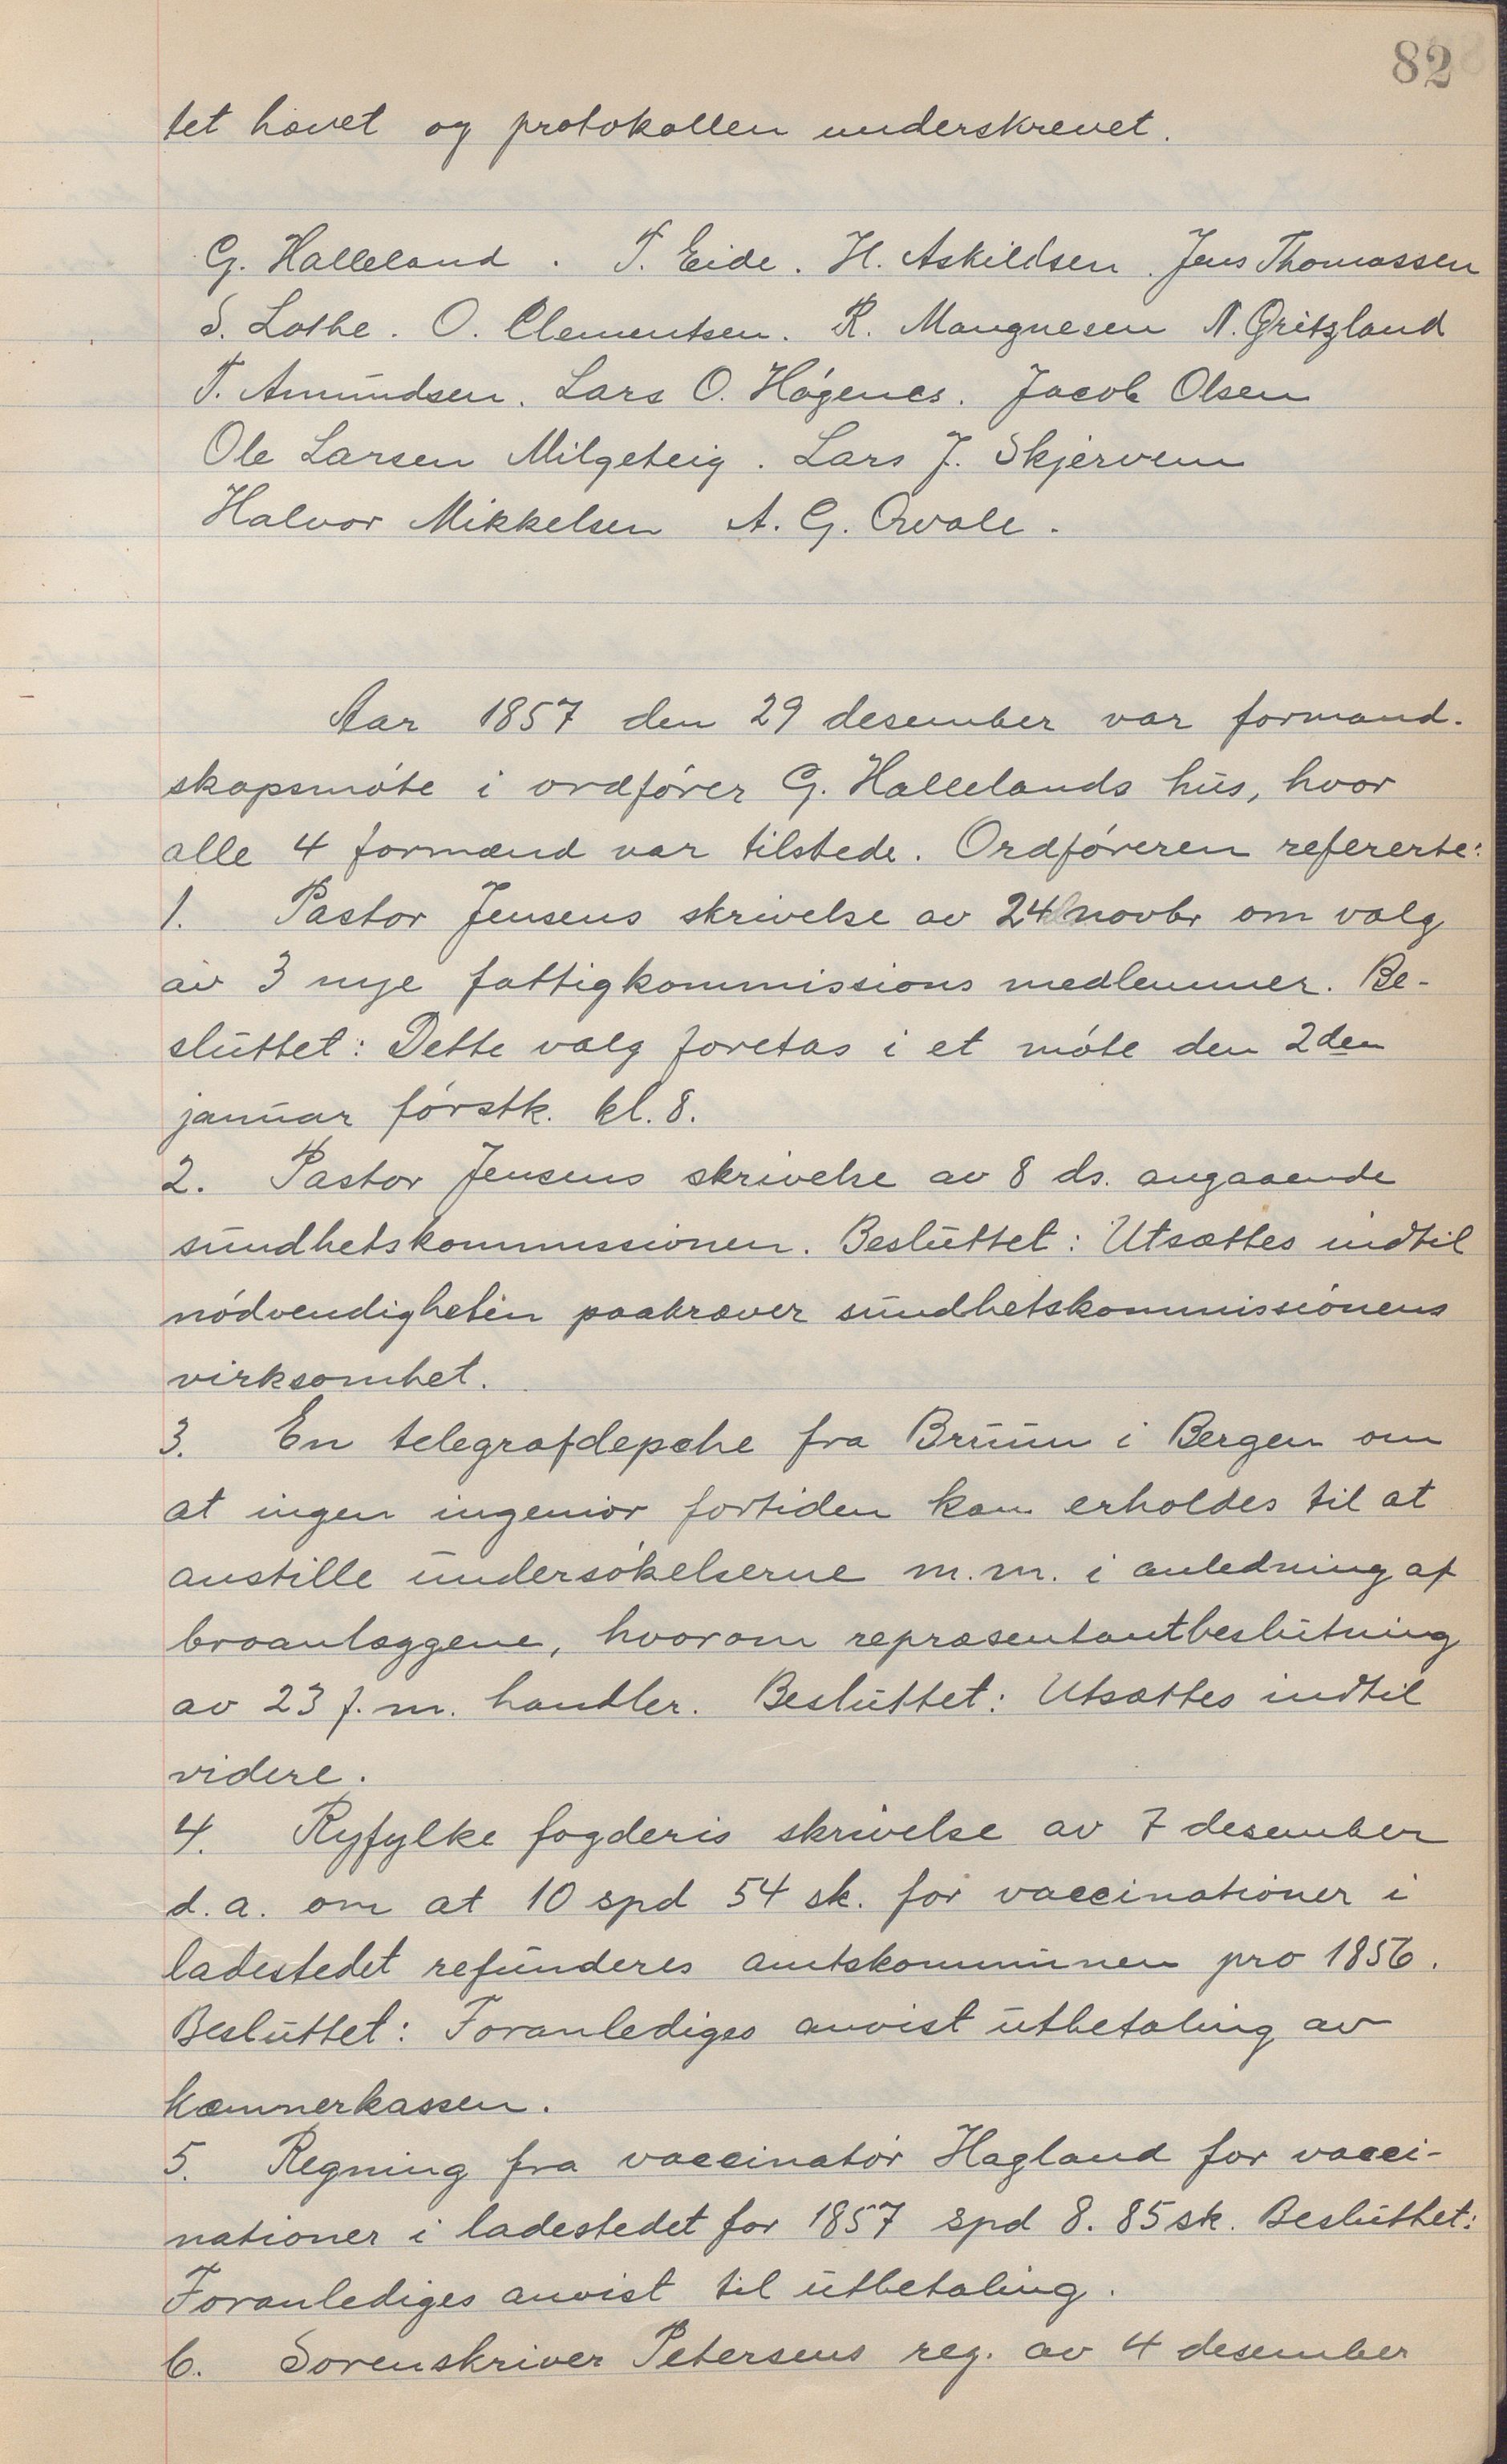 82
tet hævet og protokollen underskrevet.
G. Halleland. T. Eide. H. Askildsen. Jens Thomassen
S. Lothe. O. Clementsen. R. Mangnesen N. Gritzland
T. Amundsen. Lars O. Høgenes. Jacob Olsen
Ole Larsen Milgeteig. Lars J. Skjervem
Halvor Mikkelsen A. G. Qvale.
Aar 1857 den 29 desember var formand-
skapsmøte i ordfører G. Hallelands hus, hvor
alle 4 formænd var tilstede. Ordføreren refererte:
1. Pastor Jensens skrivelse av 24 novbr om valg
av 3 nye fattigkommissions medlemmer. Be-
sluttet: Dette valg foretas i et møte den 2den
januar førstk. kl. 8.
2. Pastor Jensens skrivelse av 8 ds. angaaende
sundhetskommissionen. Besluttet: Utsættes indtil
nødvendigheten paakræver sundhetskommissionens
virksomhet.
3. En telegrafdepehe fra Bruun i Bergen om
at ingen ingeniør fortiden kan erholdes til at
anstille undersøkelserne m.m. i anledning af
broanlæggene, hvorom repræsentantbeslutning
av 23 f. m. handler. Besluttet: Utsættes indtil
videre.
4. Ryfylke fogderis skrivelse av 7 desember
d. a. om at 10 spd 54 sk. for vaccinationer i
ladestedet refunderes amtskommunen pro 1856.
Besluttet: Foranlediges anvist utbetaling av
kæmnerkassen.
5. Regning fra vaccinatør Hagland for vacci-
nationer i ladestedet for 1857 spd 8. 85 sk. Besluttet:
Foranlediges anvist til utbetaling.
6. Sorenskriver Petersens reg. av 4 desember